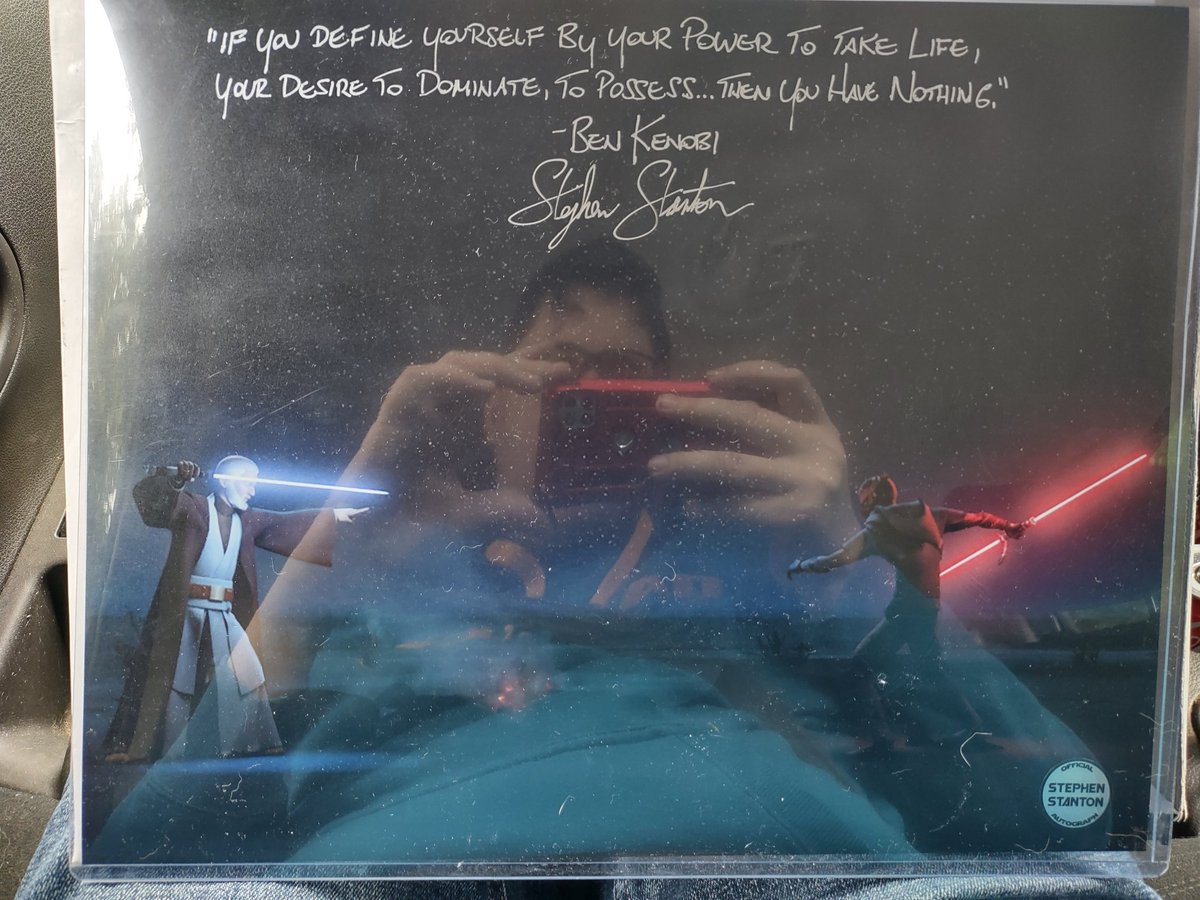 "IF YOU DEFINE YOURSELF BY YOUR POWER TO TAKE LIFE,
YOUR DESIRE TO DOMINATE, TO POSSESS...THEN YOU HAVE NOTHING."
-BEN KENOBI
Stephen Stanton
OFFICIAL
STEPHEN
STANTON
AUTOGRAPH